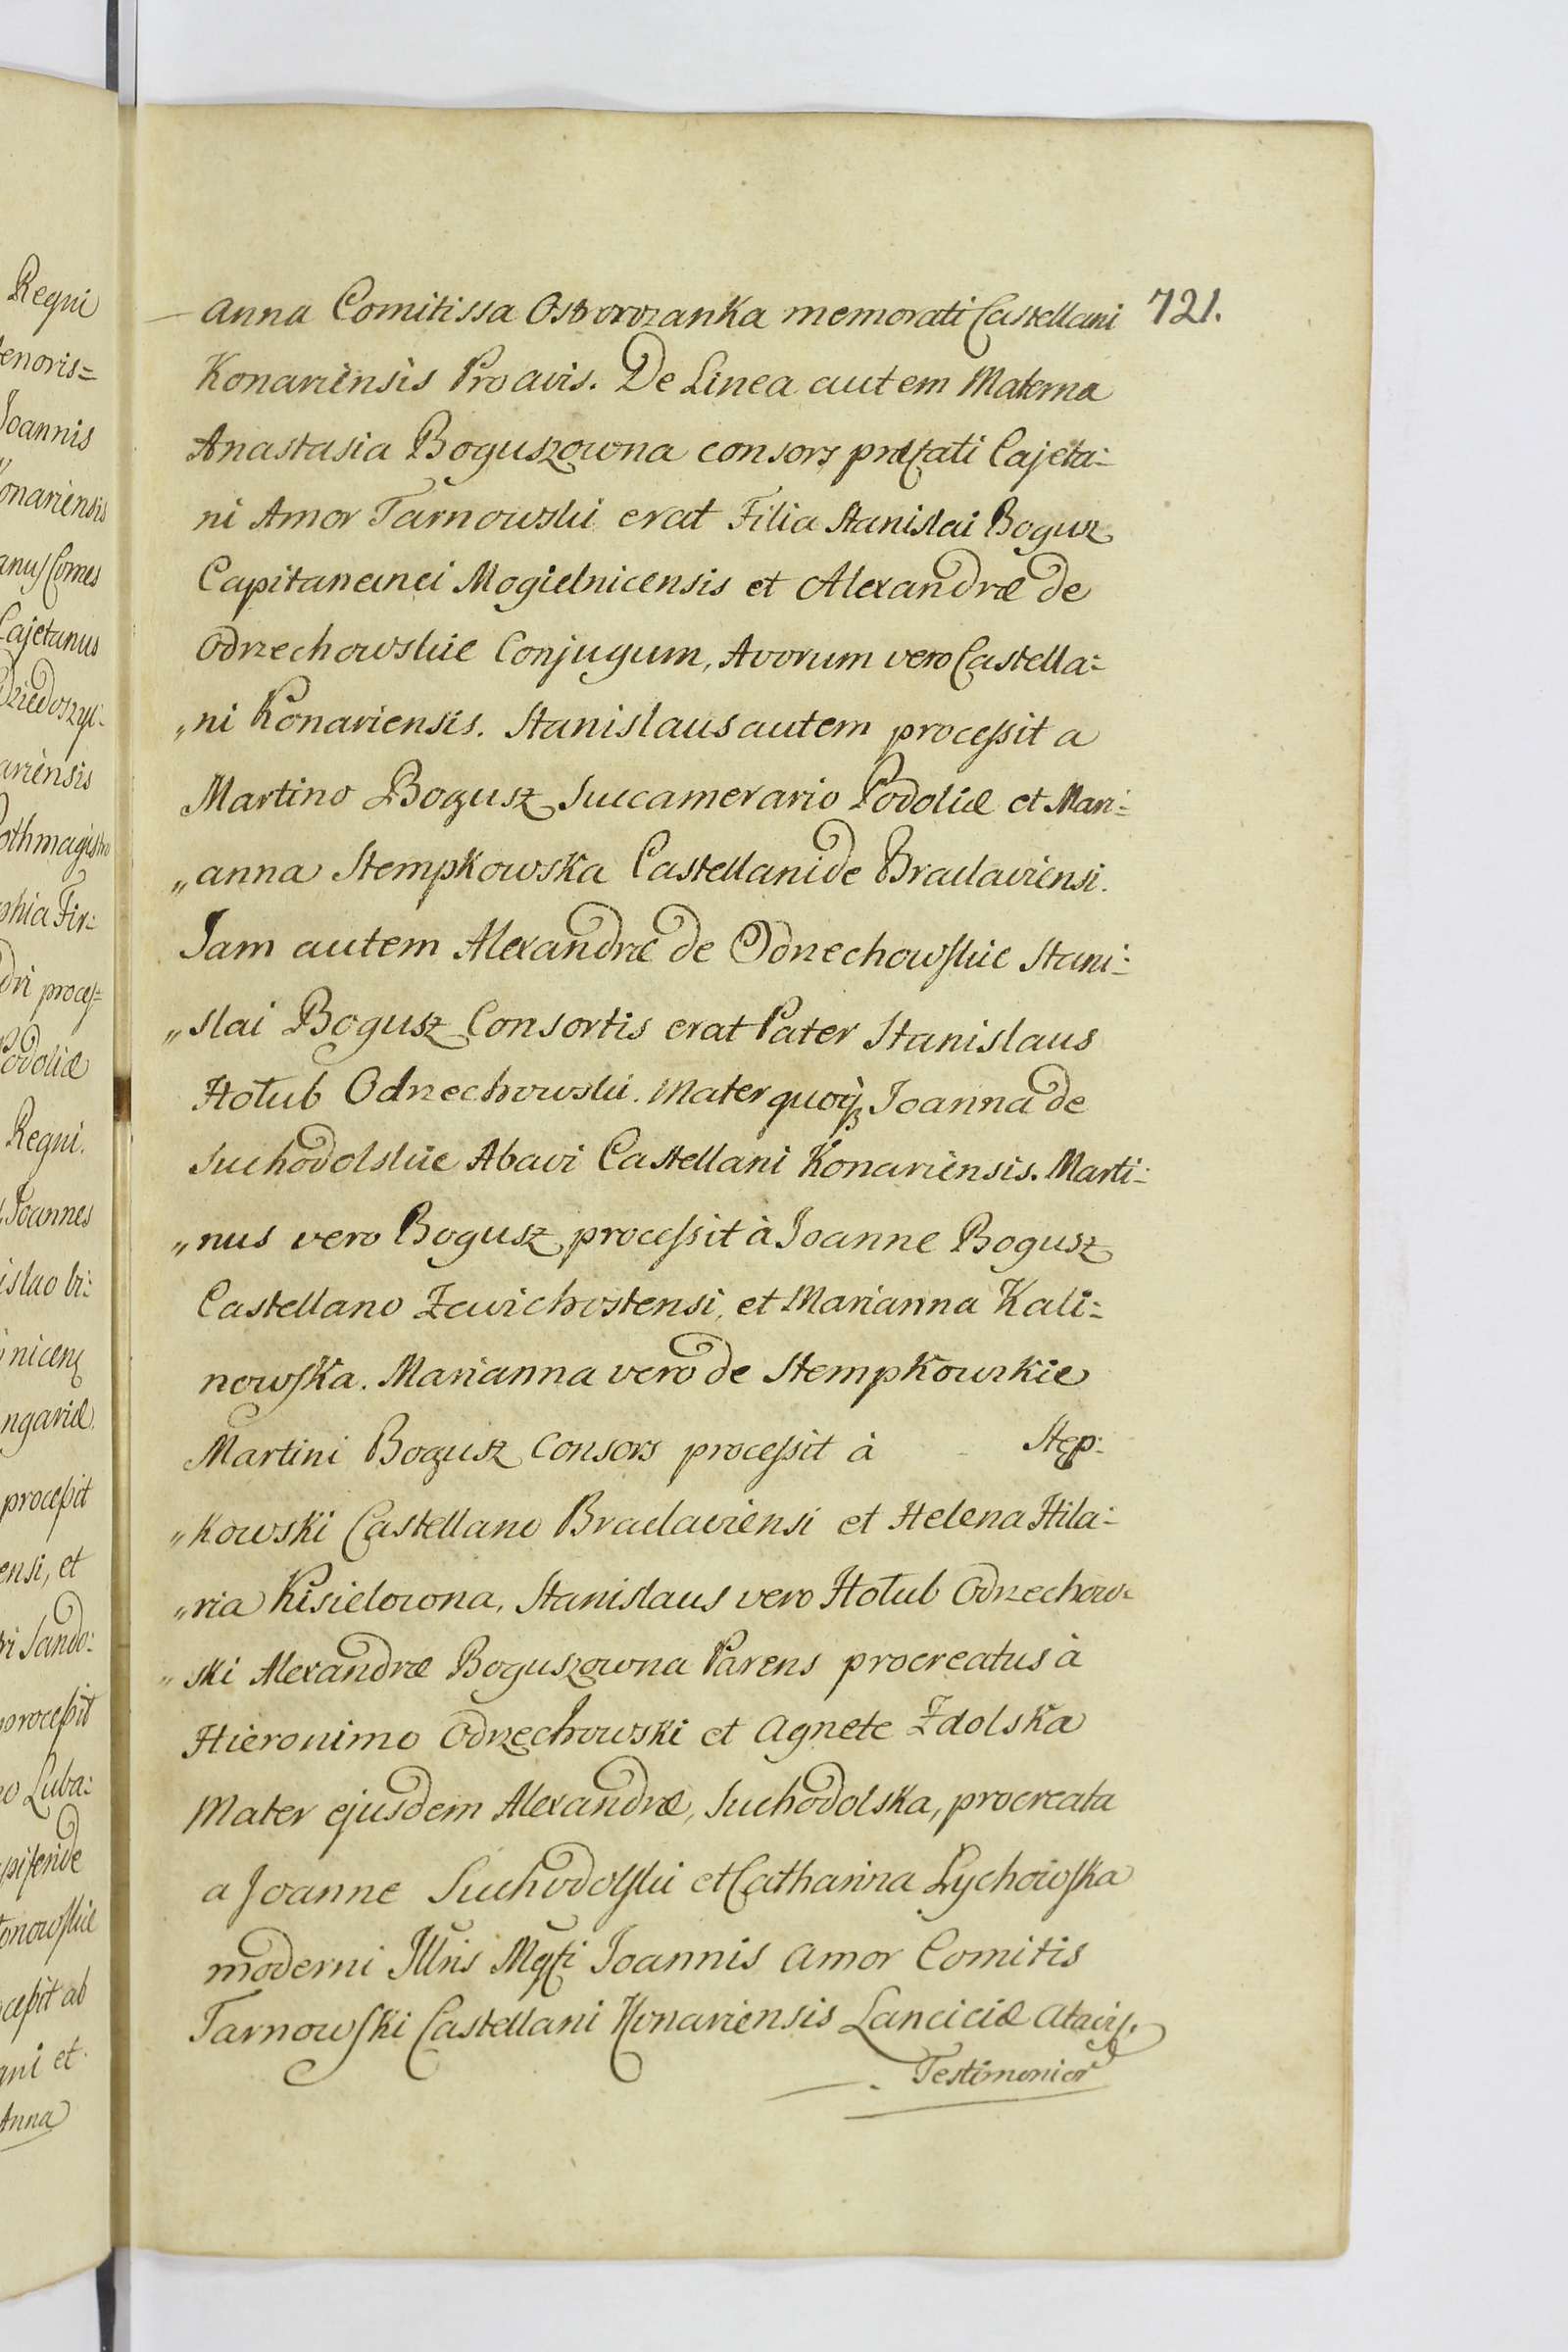 Regni
enoris=
Joannis
onariensis
anus Comes
Cajetanus
Dziedoszyc-
ariensis
othmagistro
phia Fir:
dri proces=
Podoliæ
Regni.
Joannes
islao
nicens
ngariæ
processit
ensi, et
ri Sando:
processit
o Luba:
onowskie
cessit ab
ani et
Anna
721.
Anna Comitissa Ostrorozanka memorati Castellani
Konariensis Proavis. De Linea autem Materna
Anastasia Boguszowna consors præfati Cajeta=
ni Amor Tarnowski erat Filia Stanislai Bogusz
Capitaneinei Mogielnicensis et Alexandræ de
Odrzechowskie Conjugum, Avorum vero Castella=
„ni Konariensis. Stanislaus autem processit a
Martino Bogusz Succamerario Podoliæ et Mari=
„anna Stempkowska Castellanide Braclaviensi.
Jam autem Alexandræ de Odrzechowskie Stani=
„slai Bogusz Consortis erat Pater Stanislaus
Hołub Odrzechowski. Mater quoqꝫ Joanna de
Suchodolskie Abavi Castellani Konariensis. Marti=
„nus vero Bogusz processit à Joanne Bogusz
Castellano Zawichostensi, et Marianna Kali=
nowska. Marianna vero de Stempkowskie
Martini Bogusz Consors processit à - Stęp:
„kowski Castellano Braclaviensi et Helena Hila=
„ria Kisielowna, Stanislaus vero Hołub Odrzechow=
„ski Alexandræ Boguszowna Parens procreatus à
Hieronimo Odrzechowski et Agnete Zdolska
Mater ejusdem Alexandræ, Suchodolska, procreata
a Joanne Suchodolski et Catharina Lychowska
moderni Illris Mgfi Joannis Amor Comitis
Tarnowski Castellani Konariensis Lanciciæ Atavis.
Testimonior